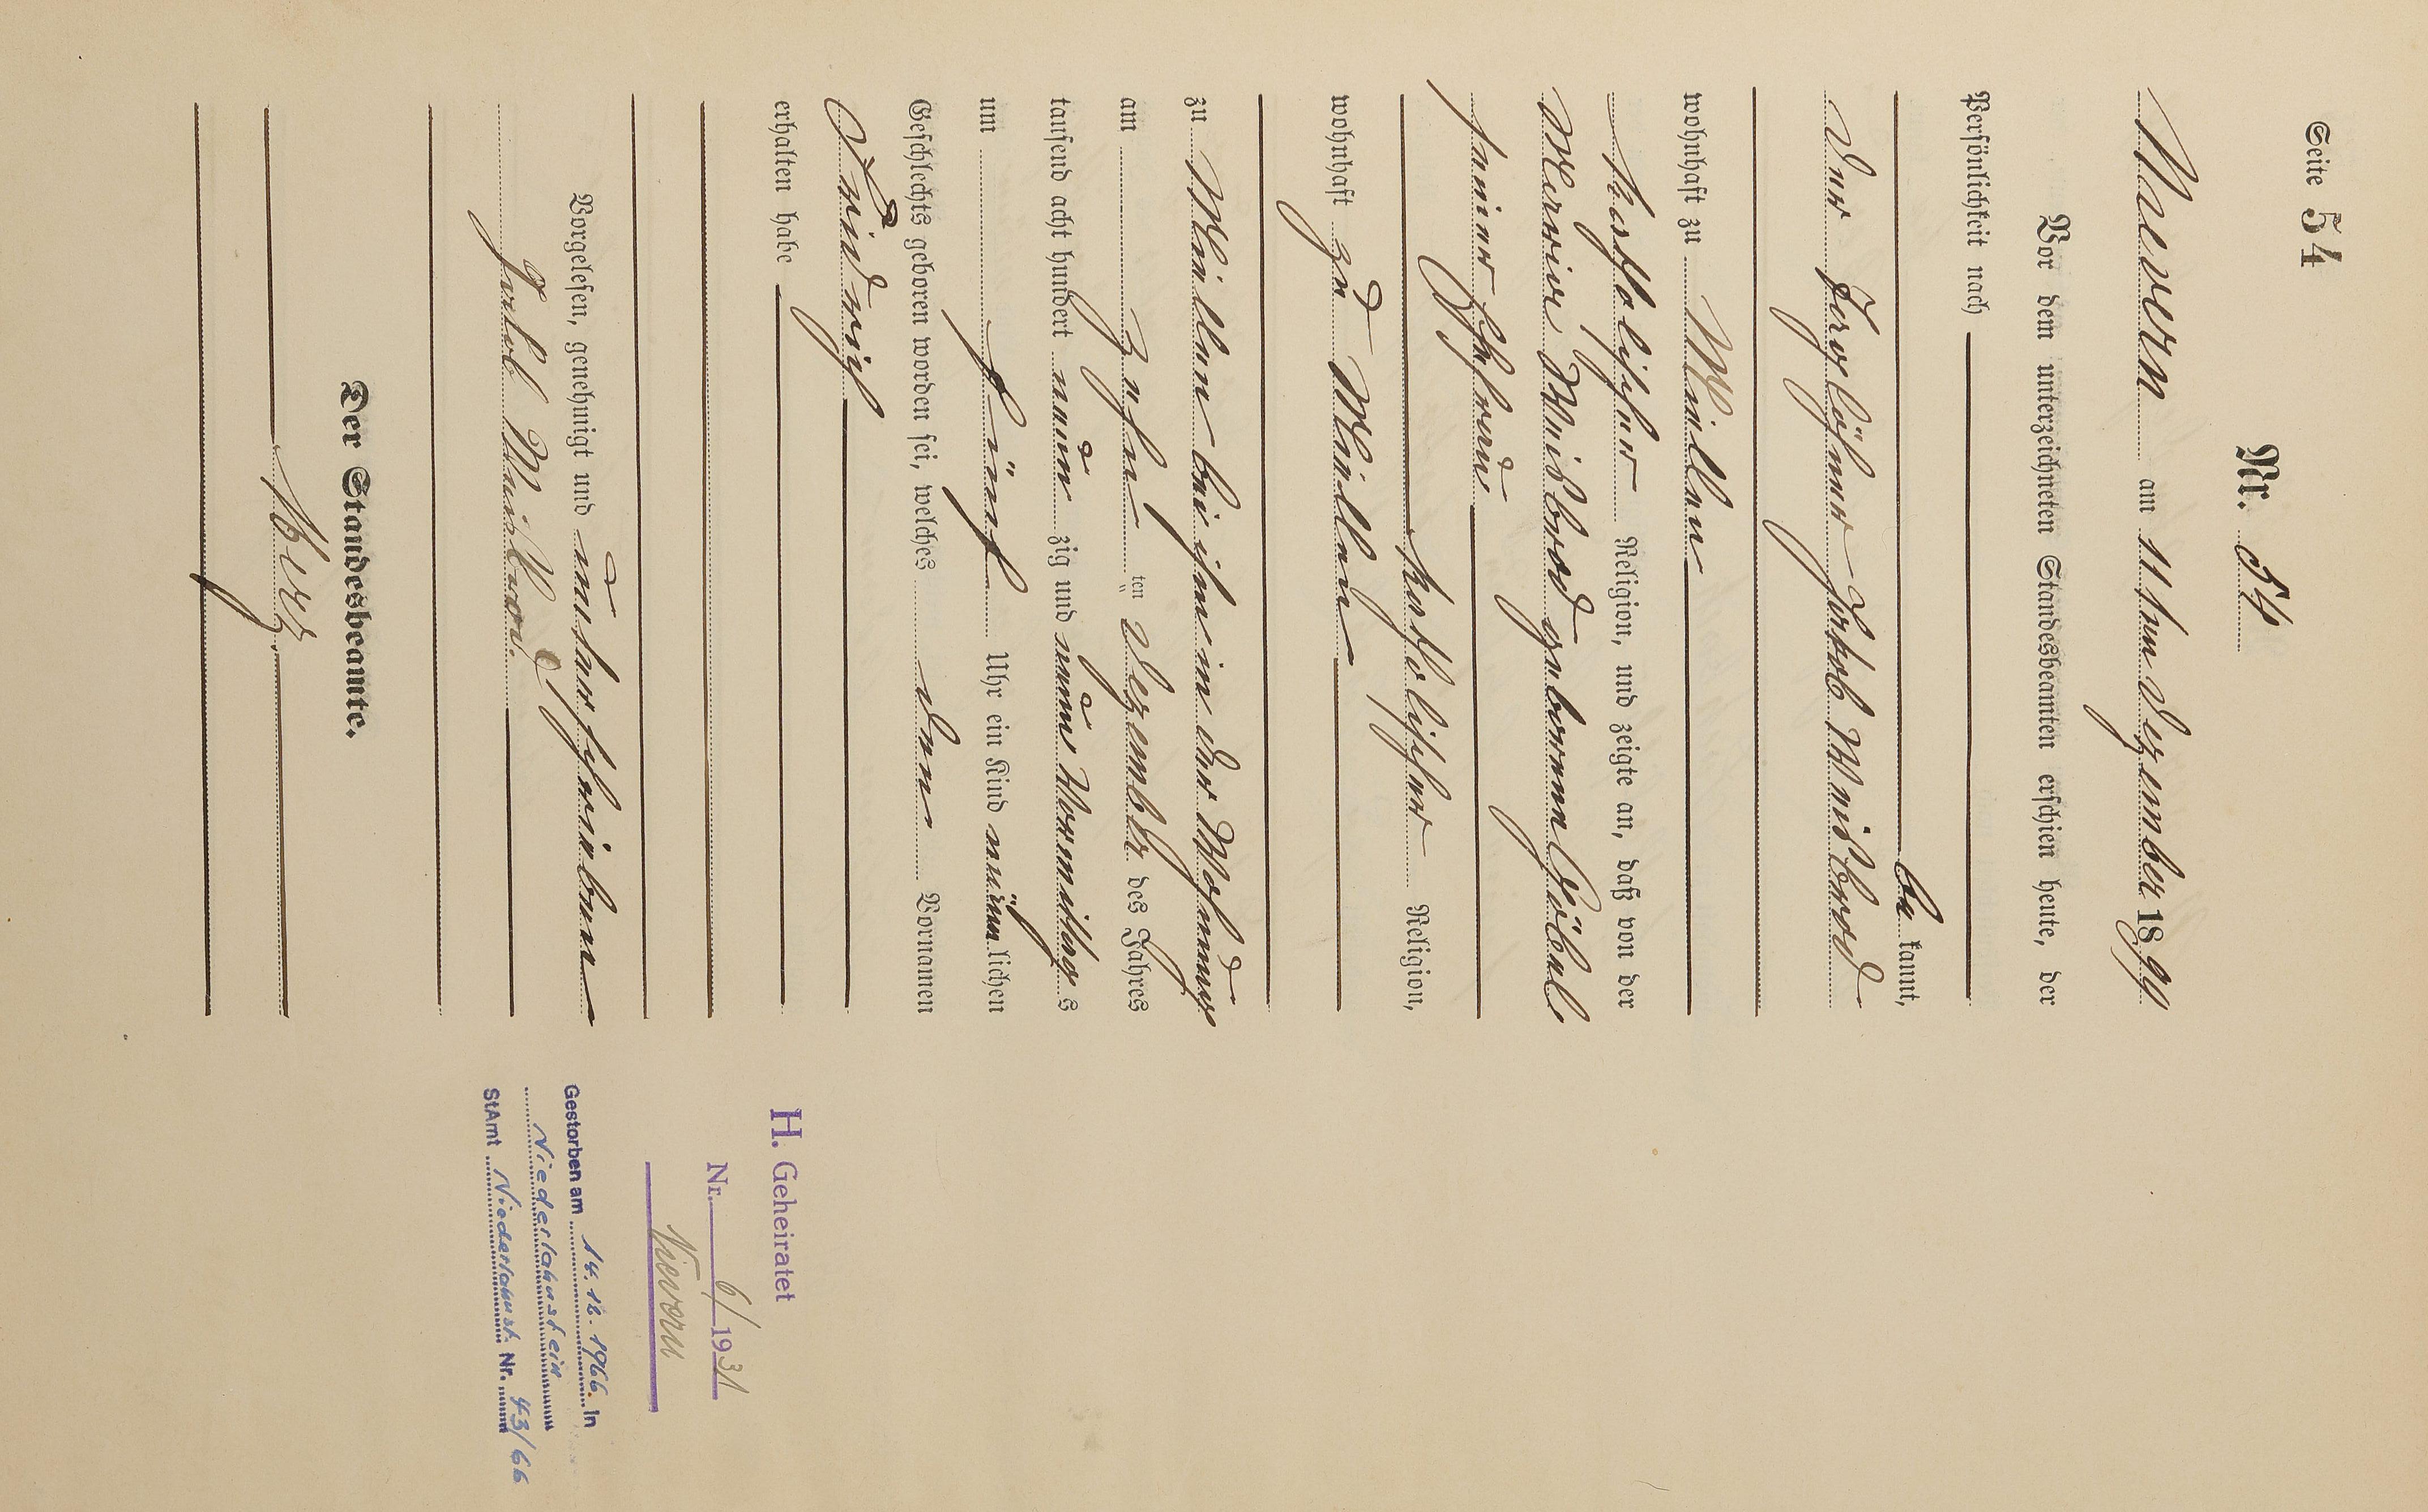 Seite 54
Nr. 54
Nievern am 11ten Dezember 1899
Vor dem unterzeichneten Standesbeamten erschien heute, der
Persönlichkeit nach
be kannt,
der Tagelöhner Jakob Weisbrod
wohnhaft zu Miellen
katholischer Religion, und zeigte an, daß von der
Maria Weisbrod geborenen Göbel
seiner Ehefrau
katholischer Religion,
wohnhaft zu Miellen
zu Miellen bei ihm in der Wohnung
am zehn ten Dezember des Jahres
tausend acht hundert neun zig und neun Vormittags
um fünf Uhr ein Kind männlichen
Geschlechts geboren worden sei, welches den Vornamen
Friedrich
erhalten habe
Vorgelesen, genehmigt und unterschrieben
Jakob Weisbrod.
Der Standesbeamte.
H. Geheiratet
Nr. 6/1931
Nievern
Gestorben am 14.12.1966. in
Niederlahnstein
StAmt Niederlahnst. Nr. 43/66